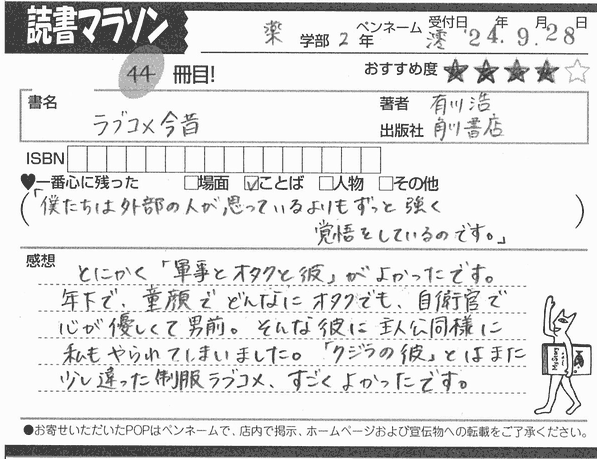 読書マラソン
薬 学部 2 年 ペンネーム 澪 受付日 '24年 9月 28日
44 冊目!
おすすめ度 ★★★★☆
書名 ラブコメ今昔
著者 有川浩
出版社 角川書店
ISBN
♥一番心に残った □場面 ☑ことば □人物 □その他
(「僕たちは外部の人が思っているよりもずっと強く
覚悟をしているのです。」)
感想
とにかく「軍事とオタクと彼」がよかったです。
年下で、童顔でどんなにオタクでも、自衛官で
心が優しくて男前。そんな彼に主人公同様に
私もやられてしまいました。「クジラの彼」とはまた
少し違った制服ラブコメ、すごくよかったです。
●お寄せいただいたPOPはペンネームで、店内で掲示、ホームページおよび宣伝物への転載をご了承ください。